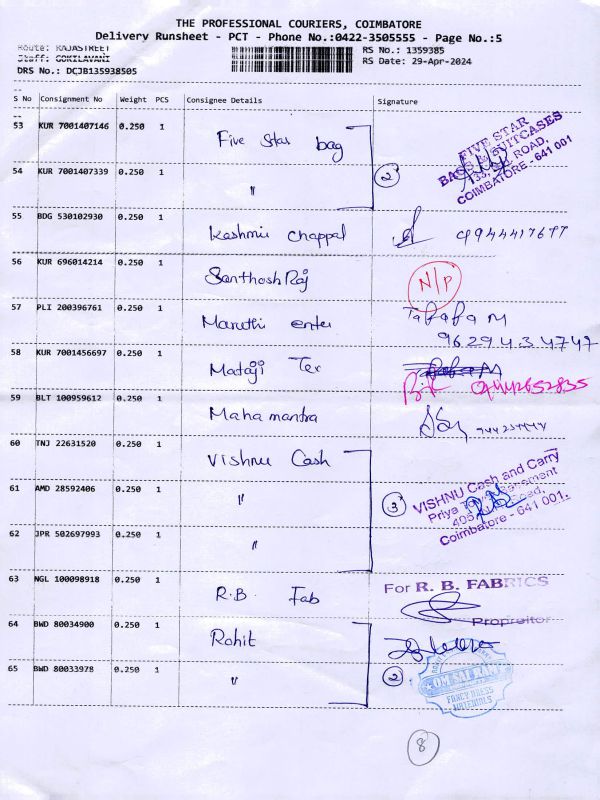 THE PROFESSIONAL COURIERS, COIMBATORE
Delivery Runsheet - PCT - Phone No.:0422-3505555 - Page No.:5
Route: RAJASTREET
Staff: GOKILAVANI
DRS No.: DCJB135938505
RS No.: 1359385
RS Date: 29-Apr-2024
S No Consignment No Weight PCS Consignee Details Signature
53 KUR 7001407146 0.250 1 Five Star bag
FIVE STAR
BAGS & SUITCASES
ROAD,
COIMBATORE - 641 001
54 KUR 7001407339 0.250 1 " 2
55 BDG 530102930 0.250 1 Kashmir Chappal 9944417677
56 KUR 696014214 0.250 1 Santhosh Raj N/P
57 PLI 200396761 0.250 1 Maruthi enter
9629434747
58 KUR 7001456697 0.250 1 Mataji Tex 9442652835
59 BLT 100959612 0.250 1 Maha mantra
60 TNJ 22631520 0.250 1 Vishnu Cash
61 AMD 28592406 0.250 1 " 3
VISHNU Cash and Carry
Priya Basement
405, Road,
Coimbatore - 641 001.
62 JPR 502697993 0.250 1 "
63 NGL 100098918 0.250 1 R.B. Fab
For R. B. FABRICS
Propreitor
64 BWD 80034900 0.250 1 Rohit
65 BWD 80033978 0.250 1 " 2
OM SAI RAM
FANCY DRESS
MATERIALS
8